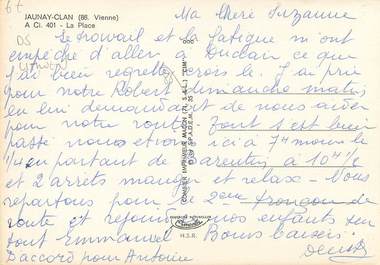 6t
JAUNAY-CLAN (86. Vienne)
A Ci. 401 - La Place
DS
CITROEN
Ma Chère Suzanne
Le travail et la fatigue m'ont
empêché d'aller à Duclair ce que
j'ai bien regretté crois le. J'ai prié
pour notre Robert dimanche matin
en lui demandant de nous aider
pour notre route. Tout s'est bien
passé nous étions ici à 7h moins le
1/4 en partant de Barentin à 10h 1/2
et 2 arrêts manger et relax - Nous
repartons pour le 2ème tronçon de
route et rejoindre nos enfants sur
tout Emmanuel Bons baisers
D'accord pour Antoine
COMBIER IMPRIMEUR MACON (71. S.-&-L.) "CIM"
S.P.A.D.E.M.
H.S.R.